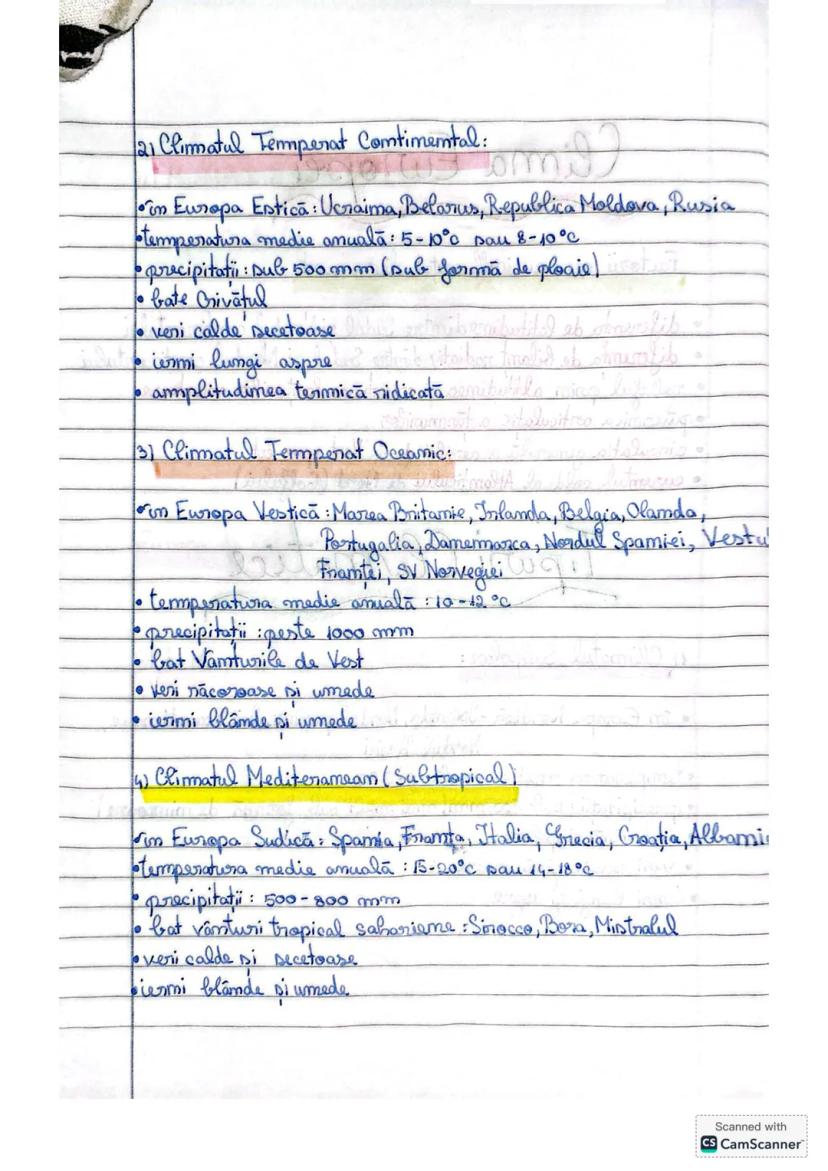 2) Climatul Temperat Continental:
• în Europa Estică: Ucraina, Belarus, Republica Moldova, Rusia
• temperatura medie anuală: 5-10°C sau 8-10°C
• precipitații: sub 500 mm (sub formă de ploaie)
• bate Crivățul
• veri calde secetoase
• ierni lungi aspre
• amplitudinea termică ridicată
3) Climatul Temperat Oceanic:
• în Europa Vestică: Marea Britanie, Irlanda, Belgia, Olanda,
Portugalia, Danemarca, Nordul Spaniei, Vestu
Franței, SV Norvegiei
• temperatura medie anuală: 10-12°C
• precipitații: peste 1000 mm
• bat Vânturile de Vest
• veri răcoroase și umede
• ierni blânde și umede
4) Climatul Mediteranean (Subtropical)
• în Europa Sudică: Spania, Franța, Italia, Grecia, Croația, Albani
• temperatura medie anuală: 15-20°C sau 14-18°C
• precipitații: 500-800 mm
• bat vânturi tropical sahariene: Sirocco, Bora, Mistralul
• veri calde și secetoase
• ierni blânde și umede
Scanned with
CS CamScanner